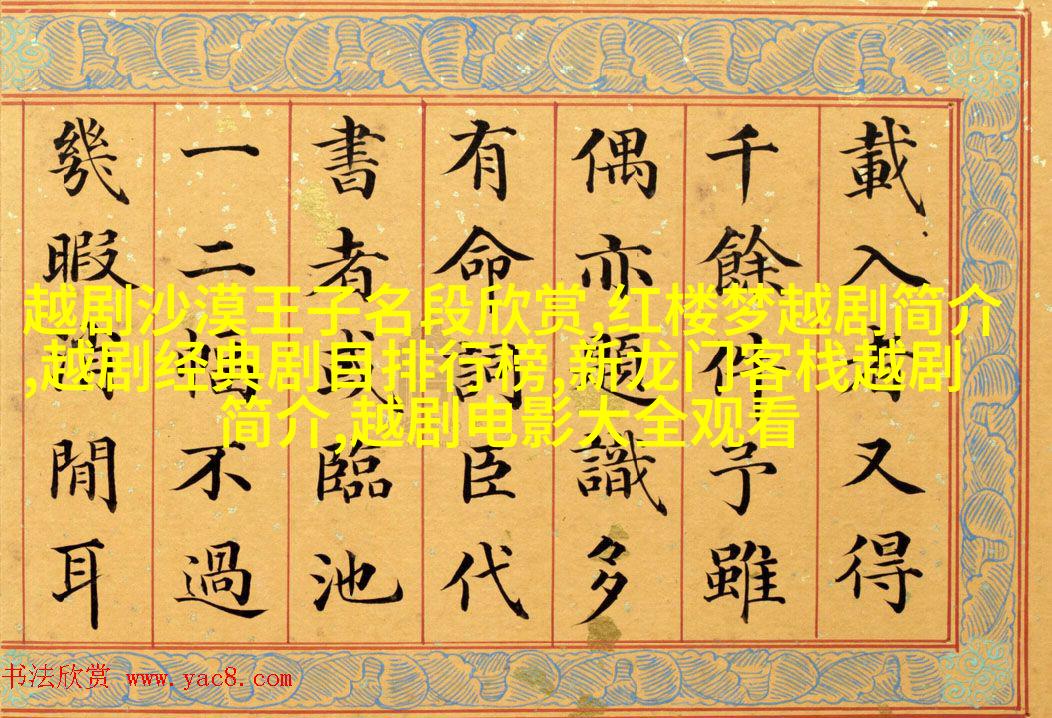 載入者又得
千餘件予雖
偶亦題識多
有命詞臣代
書者或臨池
一二幅不過
幾暇閒耳
越剧沙漠王子名段欣赏,红楼梦越剧简介
,越剧经典剧目排行榜,新龙门客栈越剧
简介,越剧电影大全观看
书法欣赏 www.yac8.com